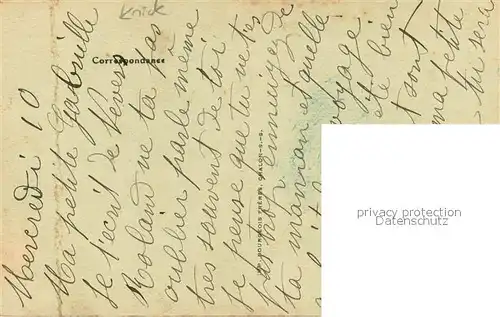 Knick
Correspondance
Mercredi 10
Ma petite Gabrielle
Je t'ecrit de Nevers
Roland ne ta pas
oublier parle même
tres souvent de toi
Je pense que tu ne tes
pas trop ennuiyer de
ta maman et quelle
voyage
bien
t sont
ma petite
tu sera
BOURGEOIS FRÈRES, CHALON-S.-S.
privacy protection
Personendatenschutz